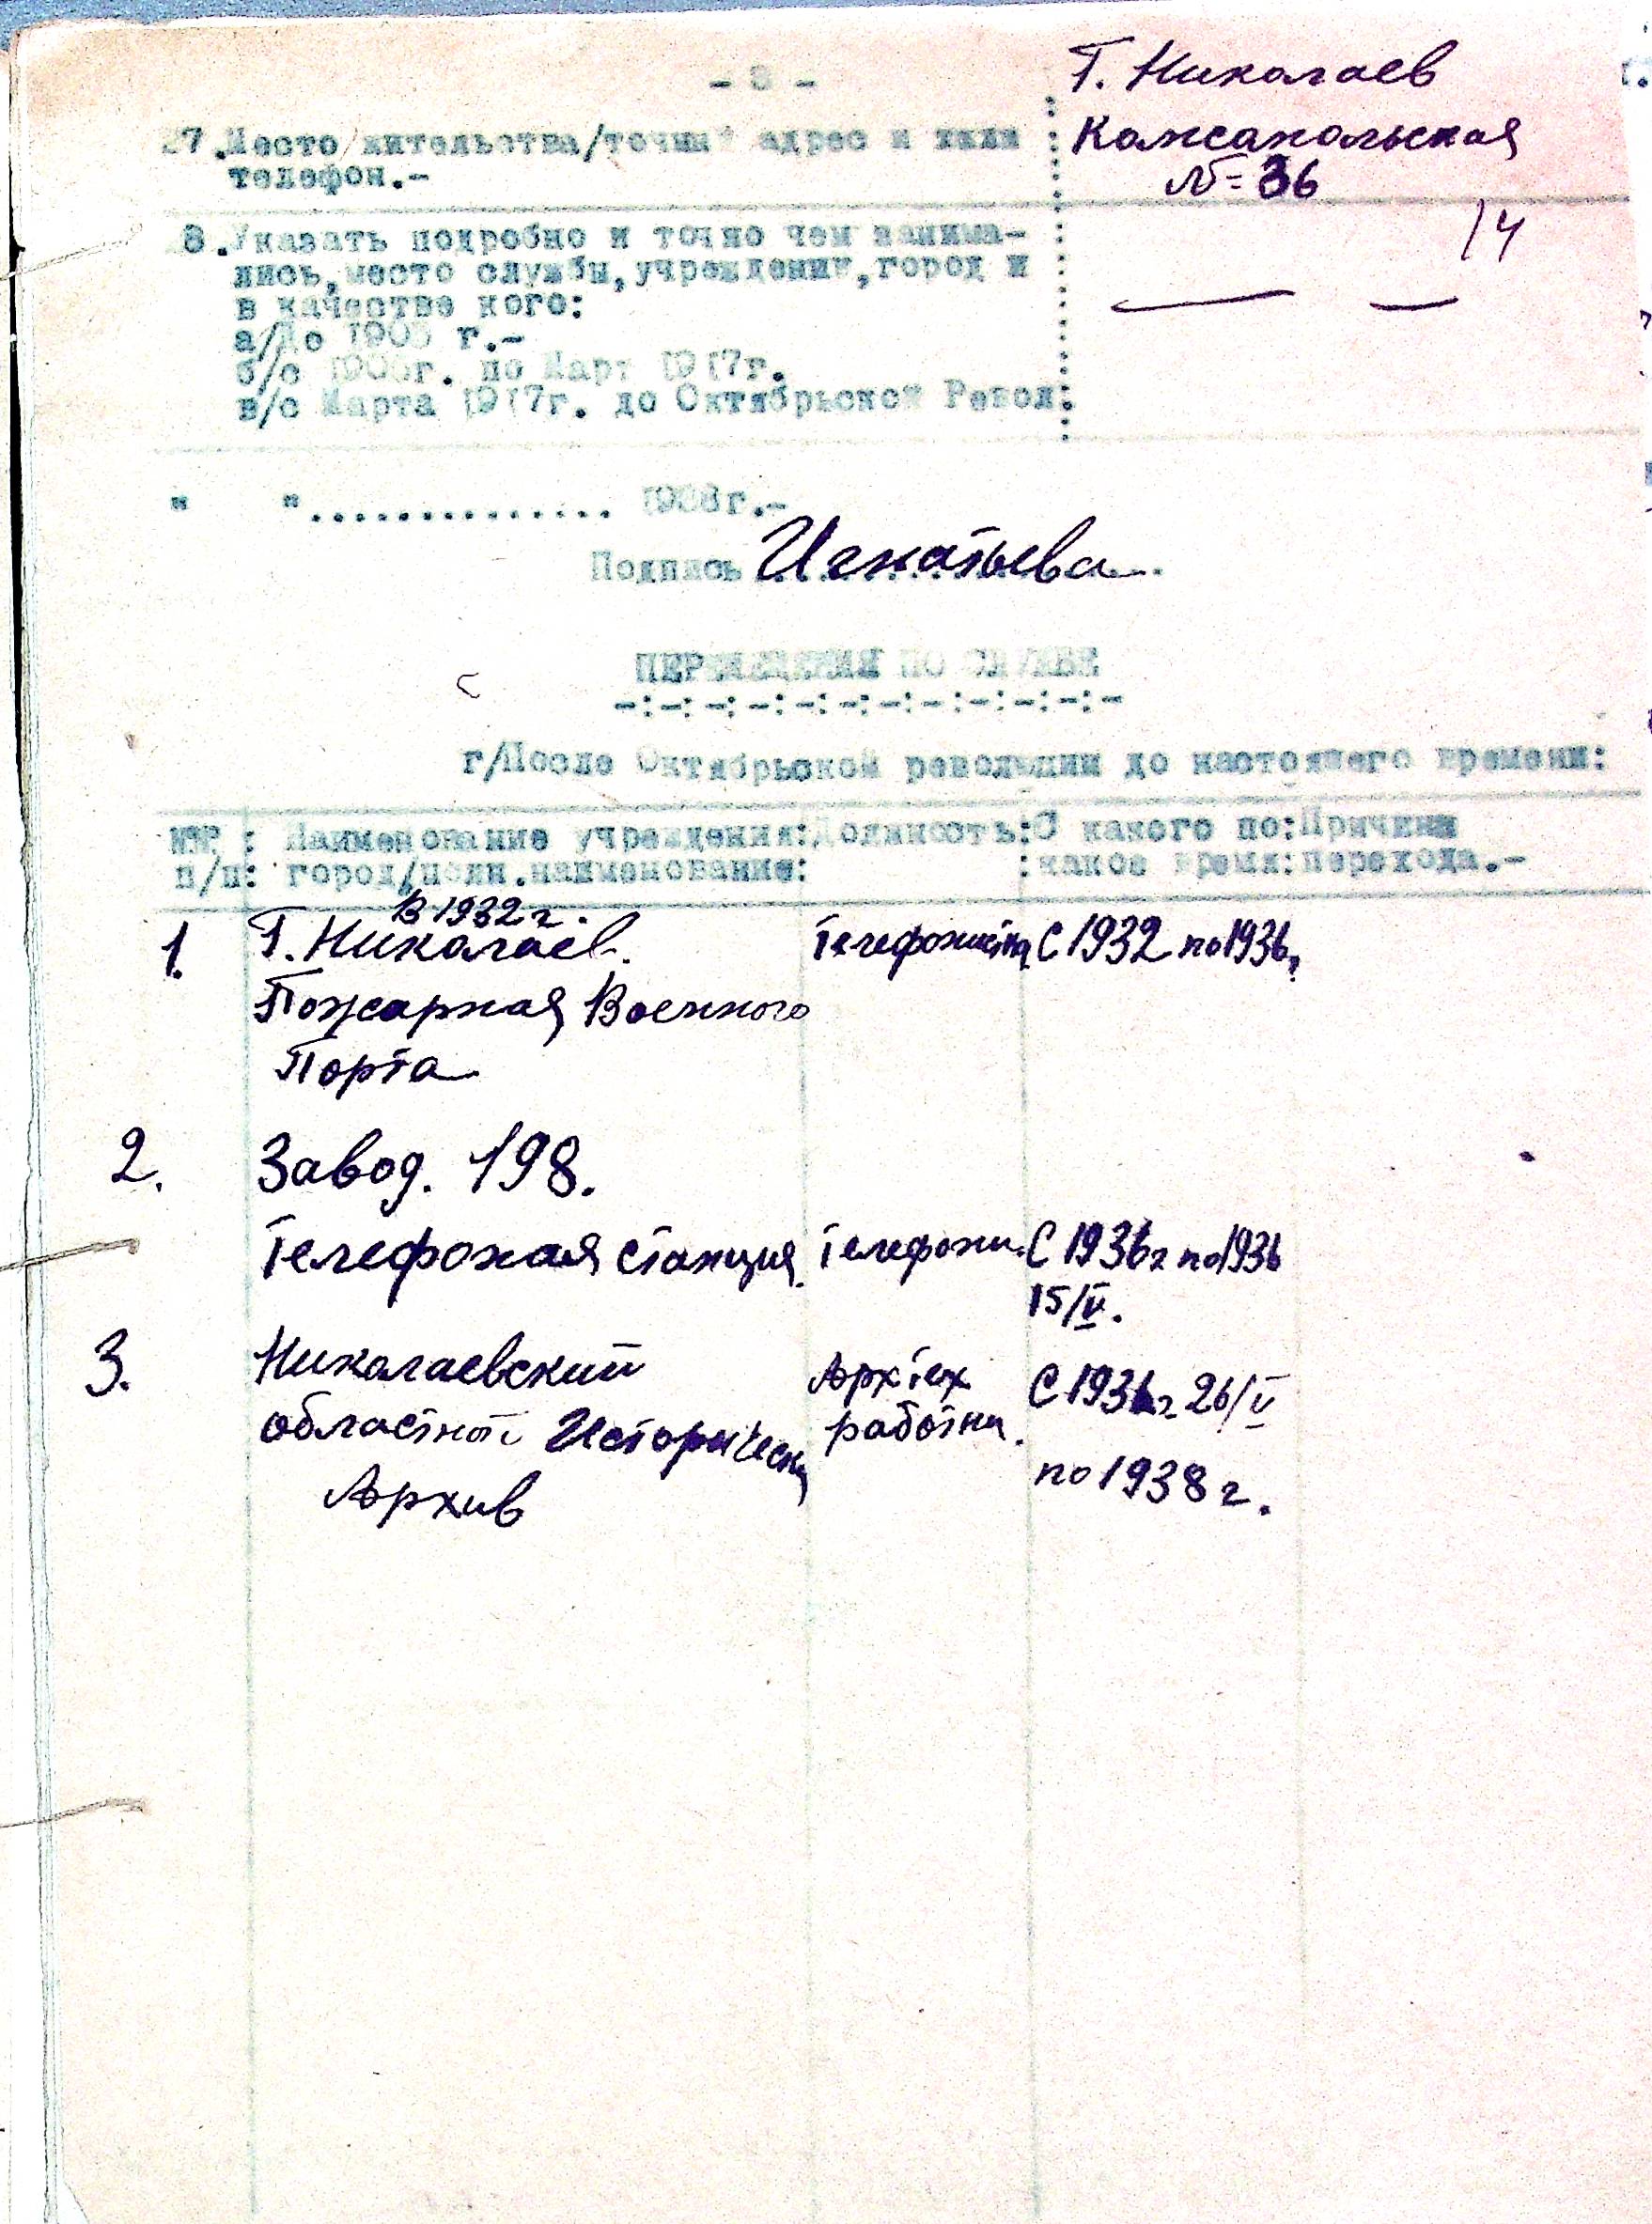 - 3 -
Г. Николаев
27. Место жительства/точный адрес и
телефон.-
Кажсапольская
№= 36
14
28. Указать подробно и точно чем занима-
лись, место службы, учреждения, город и
в качестве кого:
а/До 1905 г.-
б/с 1905г. по Март 1917г.
в/с Марта 1917г. до Октябрьской Револ:
" ".............. 1938г.-
Подпись Игнатьева
ПЕРЕМЕЩЕНИЯ ПО СЛУЖБЕ
-:-:-:-:-:-:-:-:-:-:-:-
г/После Октябрьской революции до настоящего времени:
№№ : Наименование учреждения: Должность: С какого по: Причины
п/п: город/полн. наименование: : какое время: перехода.-
в 1932 г.
1. Г. Николаев. Телефонистка С 1932 по 1936г
Пожарная Военного
Порта
2. Завод. 198.
Телефоная станция. Телефони. С 1936г по 1936
15/V.
3. Николаевский Арх тех С 1936г 26/V
областной Историческ работни.
Архив по 1938 г.